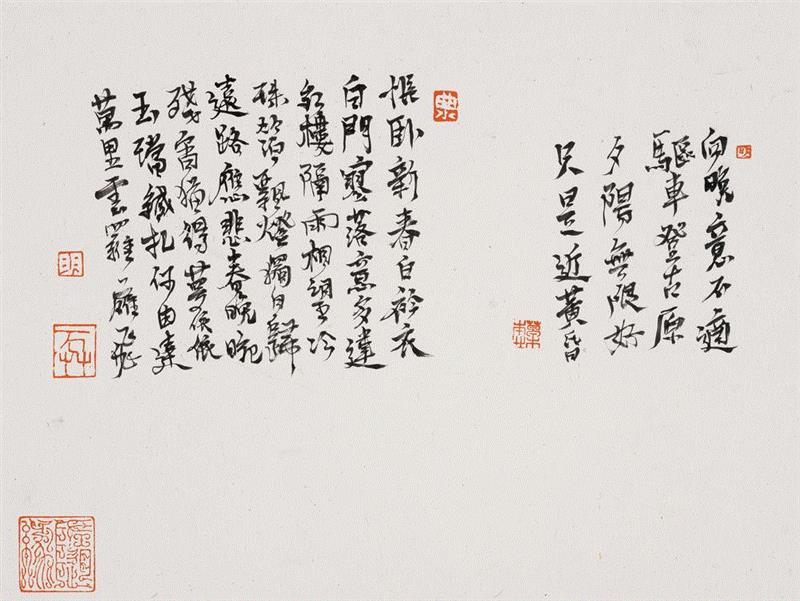 向晚意不適
驅車登古原
夕陽無限好
只是近黃昏
悵臥新春白袷衣
白門寥落意多違
紅樓隔雨相望冷
珠箔飄燈獨自歸
遠路應悲春晼晚
殘宵猶得夢依稀
玉璫緘札何由達
萬里雲羅一雁飛